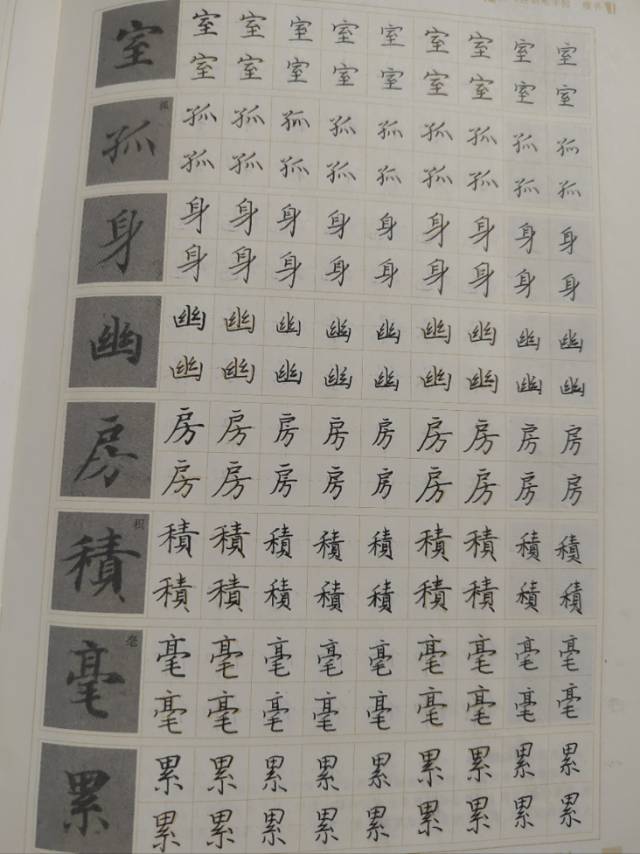 室 室 室 室 室 室 室 室 室 室
室 室 室 室 室 室 室 室 室
孤 孤 孤 孤 孤 孤 孤 孤 孤 孤
孤 孤 孤 孤 孤 孤 孤 孤 孤
身 身 身 身 身 身 身 身 身 身
身 身 身 身 身 身 身 身 身
幽 幽 幽 幽 幽 幽 幽 幽 幽 幽
幽 幽 幽 幽 幽 幽 幽 幽 幽
房 房 房 房 房 房 房 房 房 房
房 房 房 房 房 房 房 房 房
積 积 積 積 積 積 積 積 積 積 積
積 積 積 積 積 積 積 積 積
毫 毫 毫 毫 毫 毫 毫 毫 毫 毫 毫
毫 毫 毫 毫 毫 毫 毫 毫 毫
累 累 累 累 累 累 累 累 累 累
累 累 累 累 累 累 累 累 累